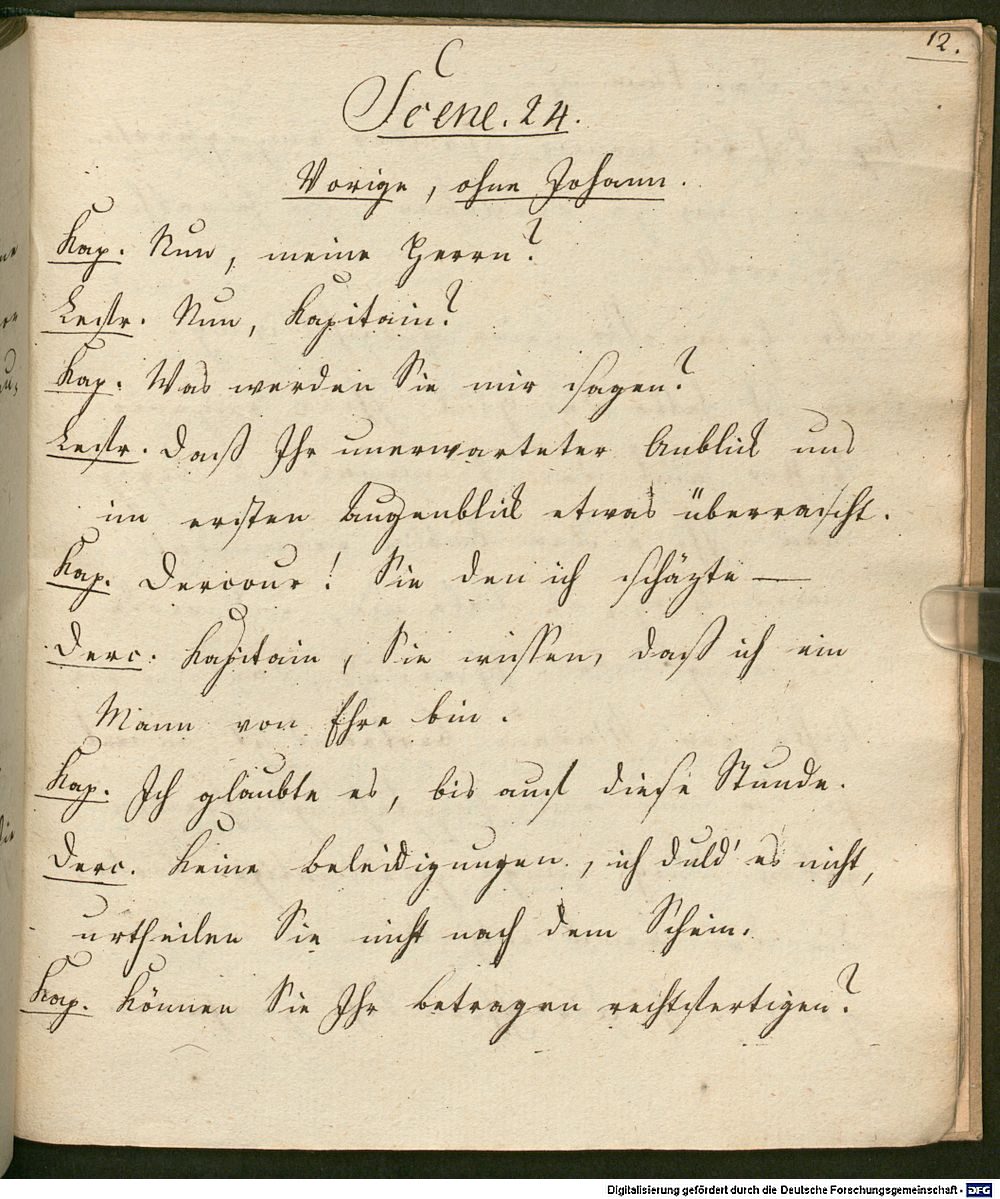 12.
Scene. 24.
Vorige, ohne Johann.
Kap. Nun, meine Herrn?
Lestr. Nun, Kapitain?
Kap. Was werden Sie mir sagen?
Lestr. Daß Ihr unerwarteter Anblick uns
im ersten Augenblick etwas überrascht.
Kap. Dervour! Sie den ich schäzte —
Derc. Kapitain, Sie wissen, daß ich ein
Mann von Ehre bin.
Kap. Ich glaubte es, bis auf diese Stunde.
Derc. Keine Beleidigungen, ich duld' es nicht,
urtheilen Sie nicht nach dem Schein.
Kap. Können Sie Ihr Betragen rechtfertigen?
Digitalisierung gefördert durch die Deutsche Forschungsgemeinschaft - DFG